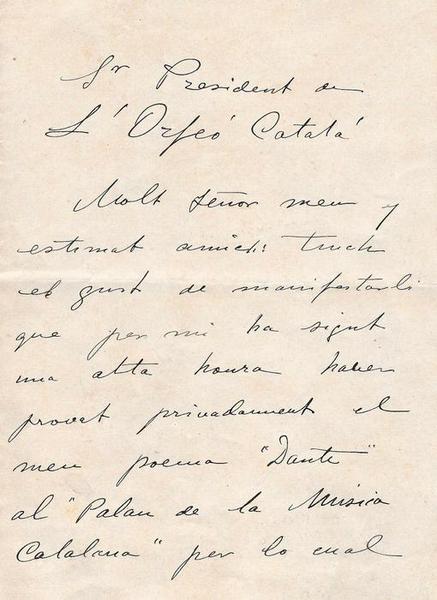 Sr President de
L'Orfeó Catalá
Molt señor meu y
estimat amich: tinch
el gust de manifestarli
que per mi ha sigut
una alta honra haber
provat privadament el
meu poema "Dante"
al "Palau de la Música
Catalana" per lo cual